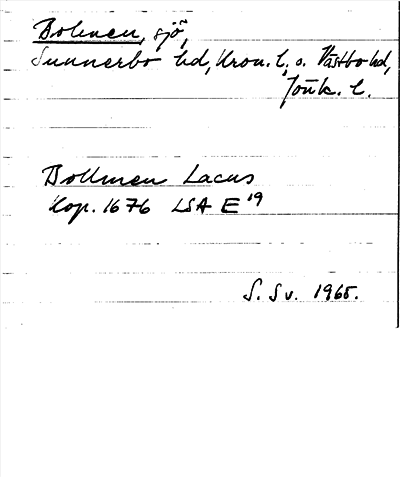 Bolmen, sjö,
Sunnerbo hd, Kron. l., o. Västbo hd,
Jönk. l.
Bollmen Lacus
Kop. 1676 LSA E 19
S. Sv. 1965.